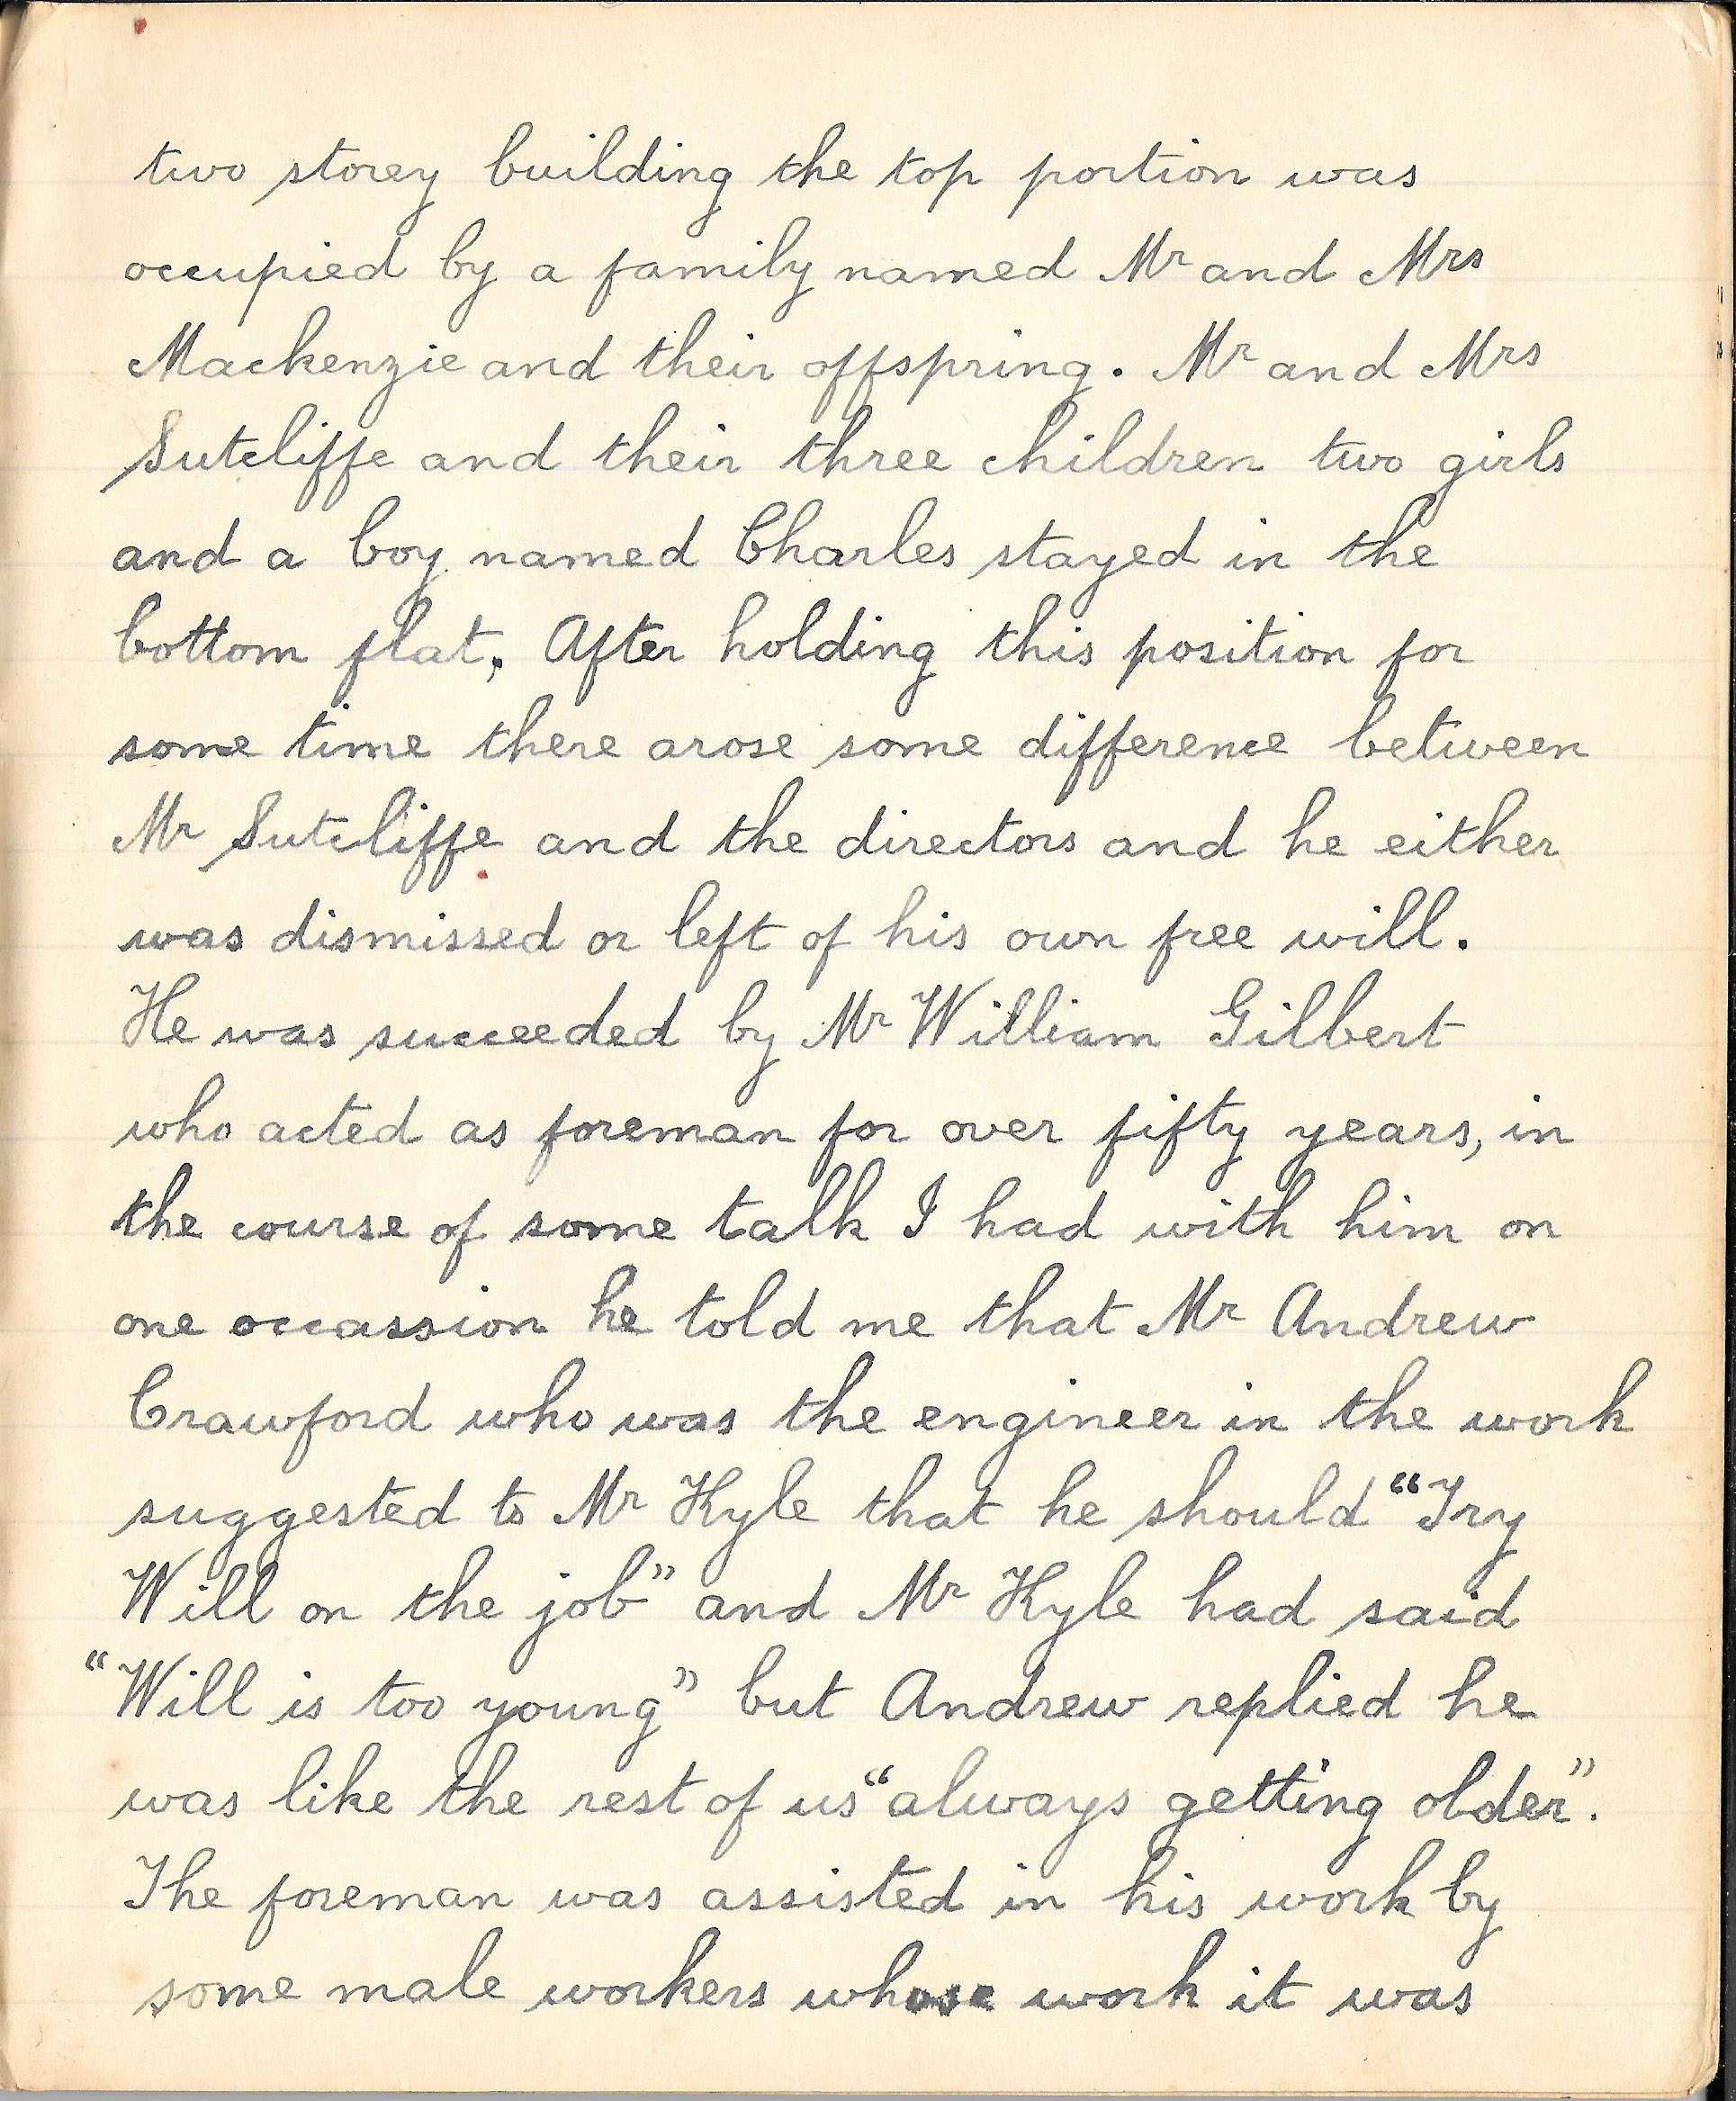 two storey building the top portion was
occupied by a family named Mr and Mrs
Mackenzie and their offspring. Mr and Mrs
Sutcliffe and their three children two girls
and a boy named Charles stayed in the
bottom flat, After holding this position for
some time there arose some difference between
Mr Sutcliffe and the directors and he either
was dismissed or left of his own free will.
He was succeeded by Mr William Gilbert
who acted as foreman for over fifty years, in
the course of some talk I had with him on
one occassion he told me that Mr Andrew
Crawford who was the engineer in the work
suggested to Mr Kyle that he should “Try
Will on the job” and Mr Kyle had said
“Will is too young” but Andrew replied he
was like the rest of us “always getting older”.
The foreman was assisted in his work by
some male workers whose work it was